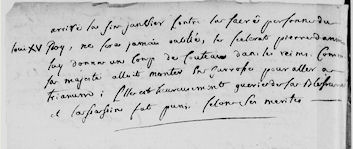 arrivé le 5 janvier contre la sacré personne du
louis XV Roy, ne sera jamais oublié, le scelerat pierre damien
luy donna un coup de couteau dans les reins. Comme
sa majesté alloit monter en carrosse pour aller a
trianum; Elle est heureusement guerie de sa blessure
et lassassin fut puni selon ses merites